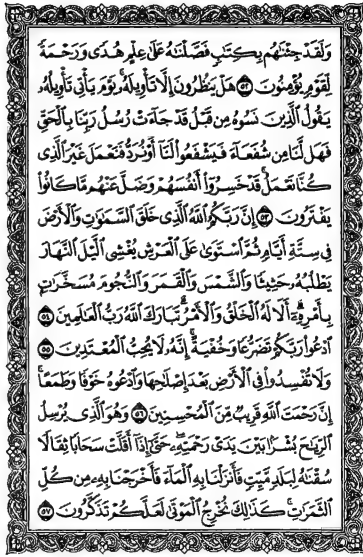 وَلَقَدْ جِئْنَٰهُم بِكِتَٰبٍ فَصَّلْنَٰهُ عَلَىٰ عِلْمٍ هُدًى وَرَحْمَةً
لِّقَوْمٍ يُؤْمِنُونَ ٥٢ هَلْ يَنظُرُونَ إِلَّا تَأْوِيلَهُۥ يَوْمَ يَأْتِي تَأْوِيلُهُۥ
يَقُولُ ٱلَّذِينَ نَسُوهُ مِن قَبْلُ قَدْ جَآءَتْ رُسُلُ رَبِّنَا بِٱلْحَقِّ
فَهَل لَّنَا مِن شُفَعَآءَ فَيَشْفَعُوا۟ لَنَآ أَوْ نُرَدُّ فَنَعْمَلَ غَيْرَ ٱلَّذِى
كُنَّا نَعْمَلُ قَدْ خَسِرُوٓا۟ أَنفُسَهُمْ وَضَلَّ عَنْهُم مَّا كَانُوا۟
يَفْتَرُونَ ٥٣ إِنَّ رَبَّكُمُ ٱللَّهُ ٱلَّذِى خَلَقَ ٱلسَّمَٰوَٰتِ وَٱلْأَرْضَ
فِى سِتَّةِ أَيَّامٍ ثُمَّ ٱسْتَوَىٰ عَلَى ٱلْعَرْشِ يُغْشِى ٱلَّيْلَ ٱلنَّهَارَ
يَطْلُبُهُۥ حَثِيثًا وَٱلشَّمْسَ وَٱلْقَمَرَ وَٱلنُّجُومَ مُسَخَّرَٰتٍۭ
بِأَمْرِهِۦٓ أَلَا لَهُ ٱلْخَلْقُ وَٱلْأَمْرُ تَبَارَكَ ٱللَّهُ رَبُّ ٱلْعَٰلَمِينَ ٥٤
ٱدْعُوا۟ رَبَّكُمْ تَضَرُّعًا وَخُفْيَةً إِنَّهُۥ لَا يُحِبُّ ٱلْمُعْتَدِينَ ٥٥
وَلَا تُفْسِدُوا۟ فِى ٱلْأَرْضِ بَعْدَ إِصْلَٰحِهَا وَٱدْعُوهُ خَوْفًا وَطَمَعًا
إِنَّ رَحْمَتَ ٱللَّهِ قَرِيبٌ مِّنَ ٱلْمُحْسِنِينَ ٥٦ وَهُوَ ٱلَّذِى يُرْسِلُ
ٱلرِّيَٰحَ بُشْرًۢا بَيْنَ يَدَىْ رَحْمَتِهِۦ حَتَّىٰٓ إِذَآ أَقَلَّتْ سَحَابًا ثِقَالًا
سُقْنَٰهُ لِبَلَدٍ مَّيِّتٍ فَأَنزَلْنَا بِهِ ٱلْمَآءَ فَأَخْرَجْنَا بِهِۦ مِن كُلِّ
ٱلثَّمَرَٰتِ كَذَٰلِكَ نُخْرِجُ ٱلْمَوْتَىٰ لَعَلَّكُمْ تَذَكَّرُونَ ٥٧